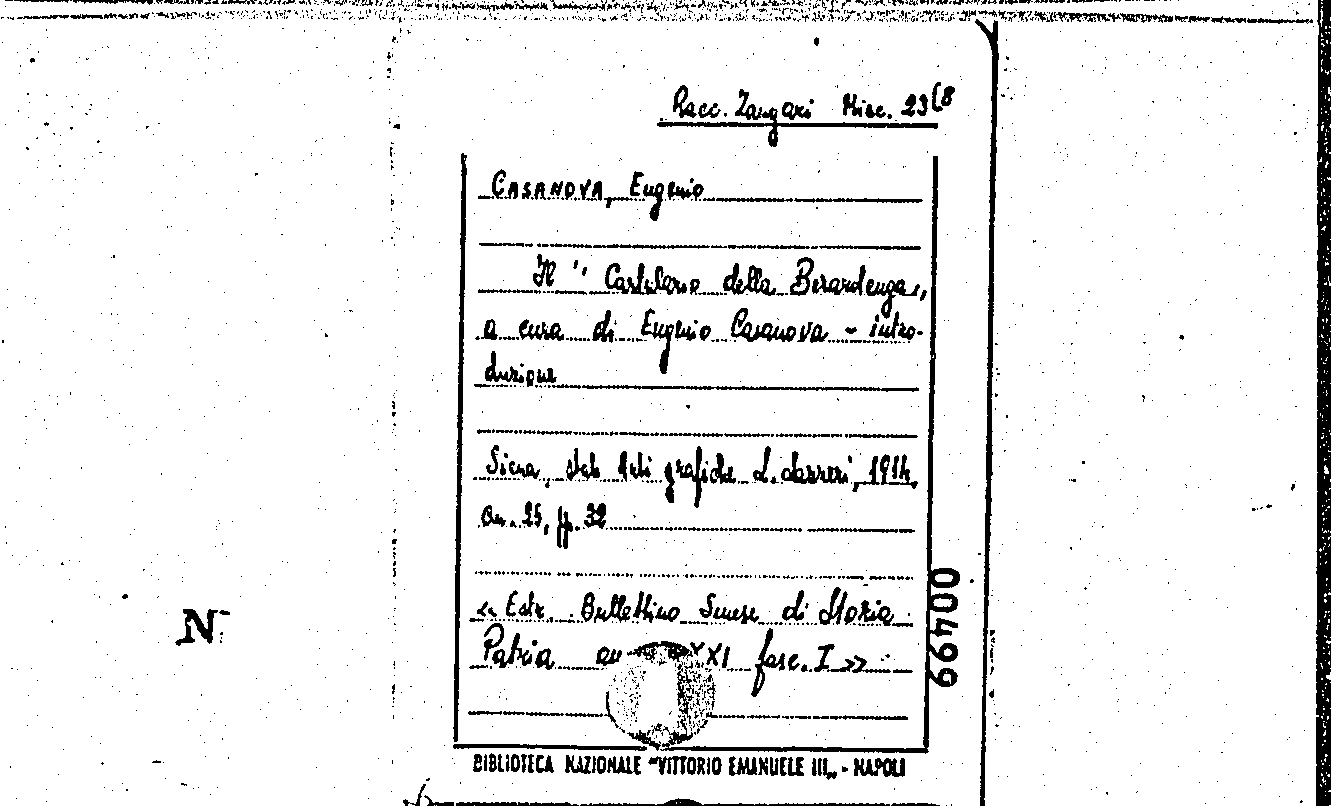 Racc. Zangari Misc. 23(8
CASANOVA, Eugenio
Il "Cartulario della Berardenga„
a cura di Eugenio Casanova - intro-
duzione
Siena, stab. Arti grafiche L. Lazzeri, 1914,
cm. 25, pp. 32
<< Estr. Bullettino Senese di Storia
Patria XXI fasc. I >>
BIBLIOTECA NAZIONALE "VITTORIO EMANUELE III„ - NAPOLI
00499
N